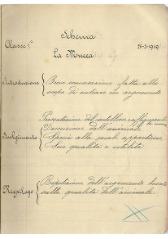 Schema
Classe 1ª
28-3-1919
La Mucca
Introduzione
Breve conversazione fatta allo
scopo di entrare in argomento
Svolgimento
Presentazione del cartellone raffigurante
Descrizione dell'animale
Specie alla quale appartiene
Sua qualità e utilità
Riepilogo
Ripetizione dell'argomento
sulle qualità dell'animale